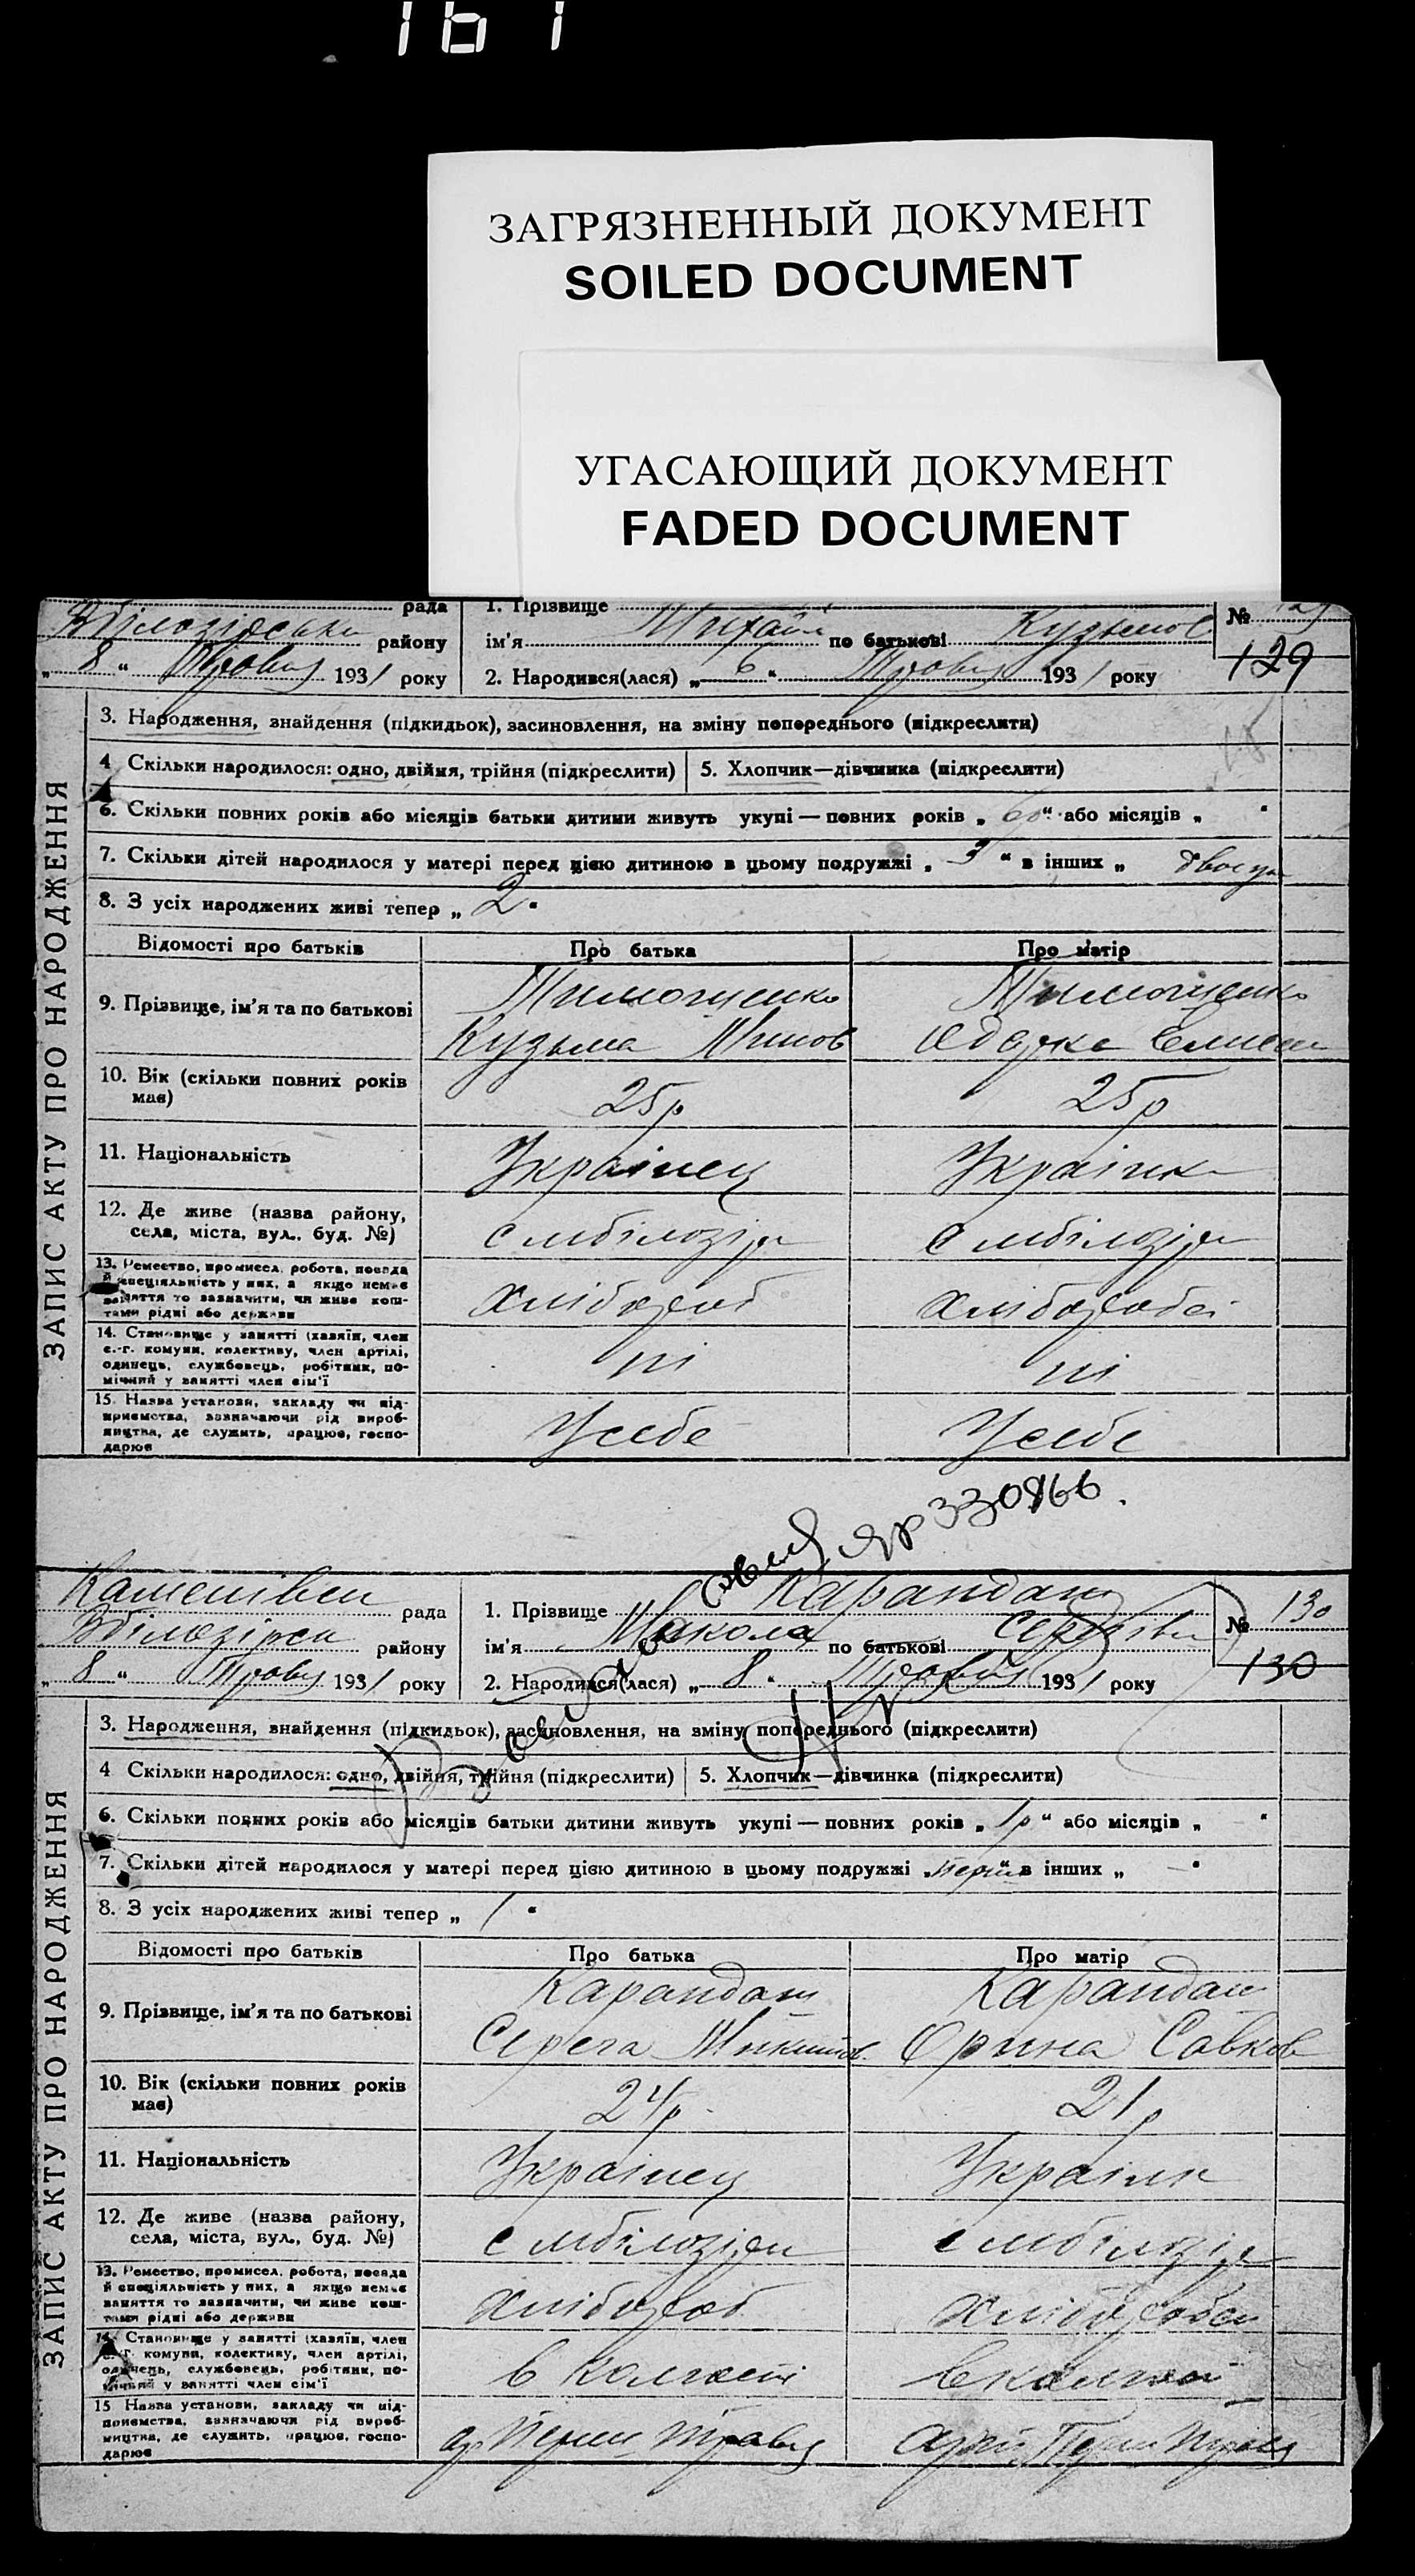 161
ЗАГРЯЗНЕННЫЙ ДОКУМЕНТ
SOILED DOCUMENT
УГАСАЮЩИЙ ДОКУМЕНТ
FADED DOCUMENT
рада 1. Прізвище №
району ім'я Михайл по батькові Кузьмов 129
„ 8 “ Травня 1931 року 2. Народився(лася) „ 6 “ Травня 1931 року
ЗАПИС АКТУ ПРО НАРОДЖЕННЯ
3. Народження, знайдення (підкидьок), засиновлення, на зміну попереднього (підкреслити)
4 Скільки народилося: одно, двійня, трійня (підкреслити) 5. Хлопчик—дівчинка (підкреслити)
6. Скільки повних років або місяців батьки дитини живуть укупі — повних років „ “ або місяців „ “
7. Скільки дітей народилося у матері перед цією дитиною в цьому подружжі „ 3 “ в інших „
8. З усіх народжених живі тепер „ 2 “
Відомості про батьків Про батька Про матір
9. Прізвище, ім'я та по батькові Тимошенко Тимошенко
Кузьма
10. Вік (скільки повних років має) 25р 25р
11. Національність Українец Українк
12. Де живе (назва району, села, міста, вул., буд. №) с мбілозірк с мбілозірк
13. Ремество, промисел, робота, посада й спеціяльність у них, а якщо немає заняття то зазначити, чи живе коштами рідні або держави хлібороб
14. Становище у занятті (хазяїн, член с.-г. комуни, колективу, член артілі, одинець, службовець, робітник, помічний у занятті член сім'ї ні ні
15. Назва установи, закладу чи підприємства, зазначаючи рід виробництва, де служить, працює, господарює Усебе Усебе
ЯР 330866.
рада 1. Прізвище Карандаш № 130
району ім'я Микола по батькові 130
„ 8 “ Травня 1931 року 2. Народився(лася) „ 8 “ Травня 1931 року
ЗАПИС АКТУ ПРО НАРОДЖЕННЯ
3. Народження, знайдення (підкидьок), засиновлення, на зміну попереднього (підкреслити)
4 Скільки народилося: одно, двійня, трійня (підкреслити) 5. Хлопчик—дівчинка (підкреслити)
6. Скільки повних років або місяців батьки дитини живуть укупі — повних років „ 1р “ або місяців „ “
7. Скільки дітей народилося у матері перед цією дитиною в цьому подружжі „ “ в інших „ — “
8. З усіх народжених живі тепер „ 1 “
Відомості про батьків Про батька Про матір
9. Прізвище, ім'я та по батькові Карандаш Карандаш
Серега Микитов. Орина Савков
10. Вік (скільки повних років має) 24р. 21р
11. Національність Українец Українк
12. Де живе (назва району, села, міста, вул., буд. №) с мбілозірк с мбілозірк
13. Ремество, промисел, робота, посада й спеціяльність у них, а якщо немає заняття то зазначити, чи живе коштами рідні або держави хлібороб
14. Становище у занятті (хазяїн, член с.-г. комуни, колективу, член артілі, одинець, службовець, робітник, помічний у занятті член сім'ї
15 Назва установи, закладу чи підприємства, зазначаючи рід виробництва, де служить, працює, господарює